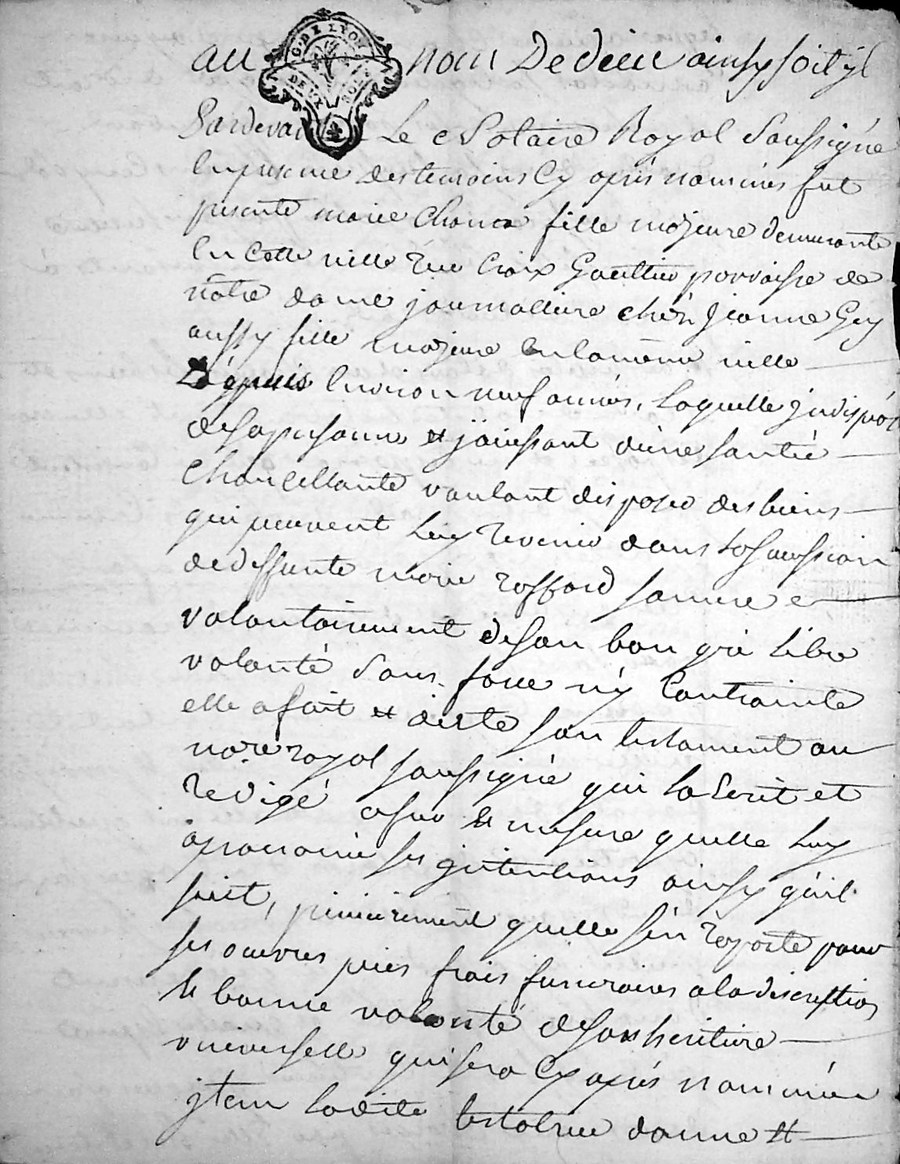 G. DE LYON
DEUX SOLS
au nom De dieu ainsy soit yl
Pardevant Le Notaire Royal Soussigné
En presence des temoins Cy aprés nommés fut
presente marie fille majeure demeurante
En Cette ville Rue Croix Gaultier parroisse de
nôtre dame journalliere chés Jeanne Gay
aussy fille majeure en la même ville
Dépuis Environ neuf années, Laquelle
de sa personne et jouissant d'une santé
Chancellante voulant disposer des biens
qui peuvent Luy revenir dans la sucession
de deffunte marie sa mere
volontairement de son bon gré Libre
volonté Sans force ny Contrainte
elle a fait et dicté son testament au
nore royal soussigné qui la Ecrit et
redigé a fur et mesure quelle Luy
ses jntentions ainsy qu'il
suit, premierement quelle s'en raporte pour
ses oeuvres pies frais funeraires a la discreption
et bonne volonté de son heritiere
universelle qui sera Cy aprés nommée
jtem Ladite testatrice donne et